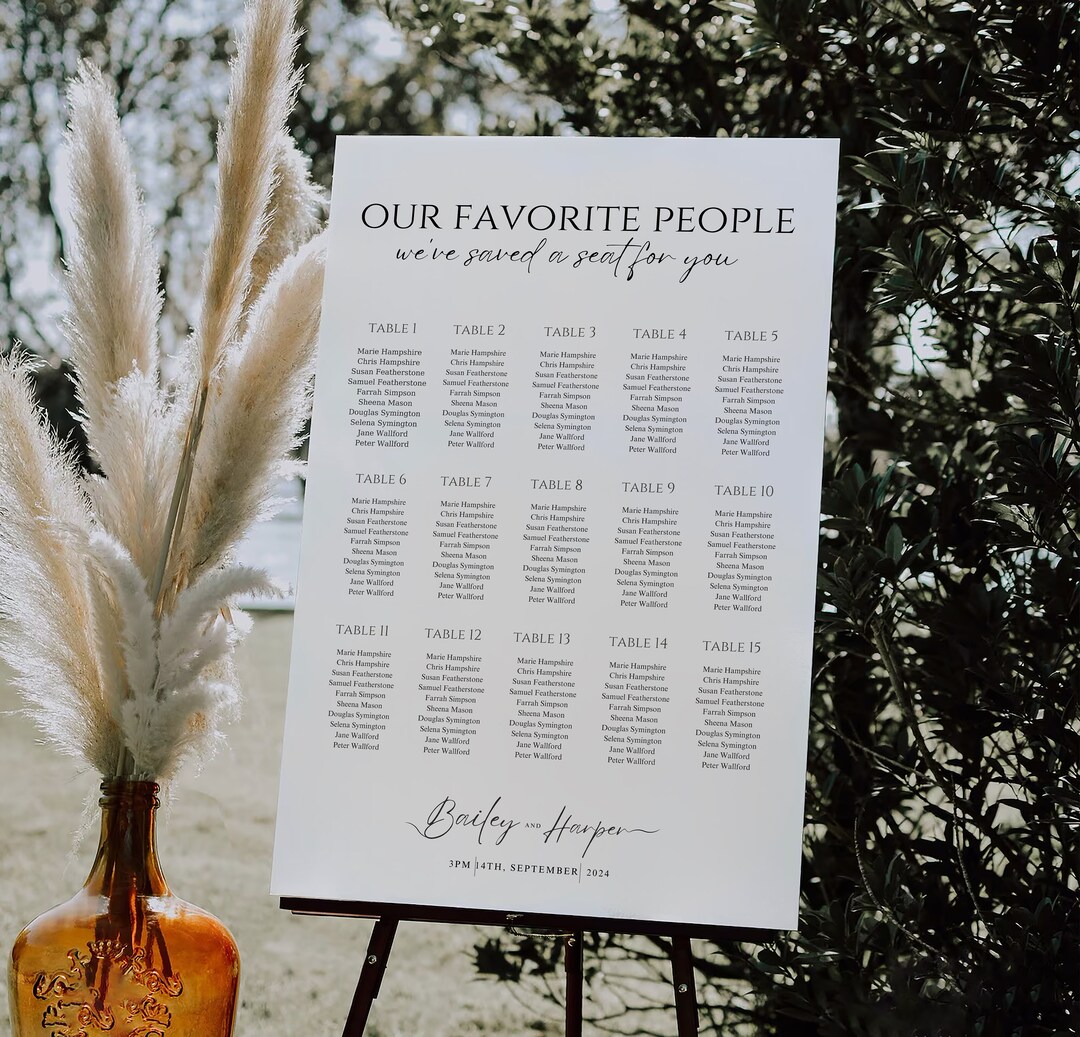 OUR FAVORITE PEOPLE
we've saved a seat for you
TABLE 1
Marie Hampshire
Chris Hampshire
Susan Featherstone
Samuel Featherstone
Farrah Simpson
Sheena Mason
Douglas Symington
Selena Symington
Jane Wallford
Peter Wallford
TABLE 2
Marie Hampshire
Chris Hampshire
Susan Featherstone
Samuel Featherstone
Farrah Simpson
Sheena Mason
Douglas Symington
Selena Symington
Jane Wallford
Peter Wallford
TABLE 3
Marie Hampshire
Chris Hampshire
Susan Featherstone
Samuel Featherstone
Farrah Simpson
Sheena Mason
Douglas Symington
Selena Symington
Jane Wallford
Peter Wallford
TABLE 4
Marie Hampshire
Chris Hampshire
Susan Featherstone
Samuel Featherstone
Farrah Simpson
Sheena Mason
Douglas Symington
Selena Symington
Jane Wallford
Peter Wallford
TABLE 5
Marie Hampshire
Chris Hampshire
Susan Featherstone
Samuel Featherstone
Farrah Simpson
Sheena Mason
Douglas Symington
Selena Symington
Jane Wallford
Peter Wallford
TABLE 6
Marie Hampshire
Chris Hampshire
Susan Featherstone
Samuel Featherstone
Farrah Simpson
Sheena Mason
Douglas Symington
Selena Symington
Jane Wallford
Peter Wallford
TABLE 7
Marie Hampshire
Chris Hampshire
Susan Featherstone
Samuel Featherstone
Farrah Simpson
Sheena Mason
Douglas Symington
Selena Symington
Jane Wallford
Peter Wallford
TABLE 8
Marie Hampshire
Chris Hampshire
Susan Featherstone
Samuel Featherstone
Farrah Simpson
Sheena Mason
Douglas Symington
Selena Symington
Jane Wallford
Peter Wallford
TABLE 9
Marie Hampshire
Chris Hampshire
Susan Featherstone
Samuel Featherstone
Farrah Simpson
Sheena Mason
Douglas Symington
Selena Symington
Jane Wallford
Peter Wallford
TABLE 10
Marie Hampshire
Chris Hampshire
Susan Featherstone
Samuel Featherstone
Farrah Simpson
Sheena Mason
Douglas Symington
Selena Symington
Jane Wallford
Peter Wallford
TABLE 11
Marie Hampshire
Chris Hampshire
Susan Featherstone
Samuel Featherstone
Farrah Simpson
Sheena Mason
Douglas Symington
Selena Symington
Jane Wallford
Peter Wallford
TABLE 12
Marie Hampshire
Chris Hampshire
Susan Featherstone
Samuel Featherstone
Farrah Simpson
Sheena Mason
Douglas Symington
Selena Symington
Jane Wallford
Peter Wallford
TABLE 13
Marie Hampshire
Chris Hampshire
Susan Featherstone
Samuel Featherstone
Farrah Simpson
Sheena Mason
Douglas Symington
Selena Symington
Jane Wallford
Peter Wallford
TABLE 14
Marie Hampshire
Chris Hampshire
Susan Featherstone
Samuel Featherstone
Farrah Simpson
Sheena Mason
Douglas Symington
Selena Symington
Jane Wallford
Peter Wallford
TABLE 15
Marie Hampshire
Chris Hampshire
Susan Featherstone
Samuel Featherstone
Farrah Simpson
Sheena Mason
Douglas Symington
Selena Symington
Jane Wallford
Peter Wallford
Bailey AND Harper
3PM | 14TH, SEPTEMBER | 2024